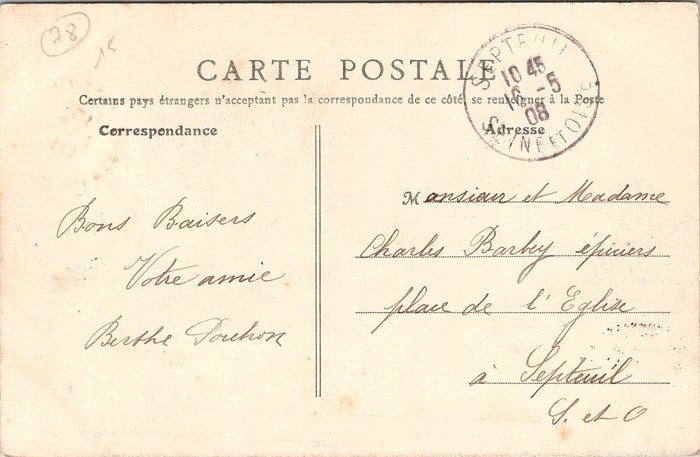 78
15
CARTE POSTALE
Certains pays étrangers n'acceptant pas la correspondance de ce côté, se renseigner à la Poste
SEPTEUIL
10 45
16 - 5
08
SEINE ET OISE
Correspondance
Adresse
Bons Baisers
Votre amie
Berthe
Monsieur et Madame
Charles Barbey épiciers
place de l'Eglise
à Septeuil
S. et O